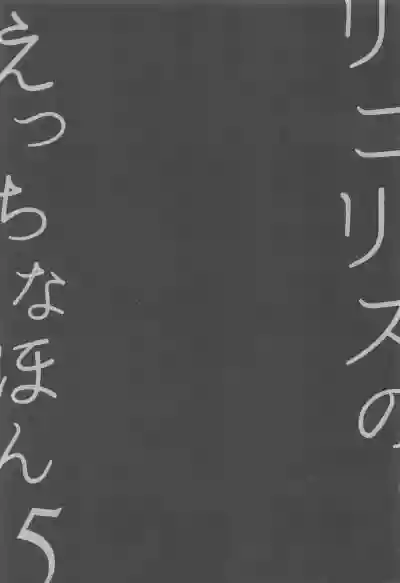 リニリスの
えっちなほん5